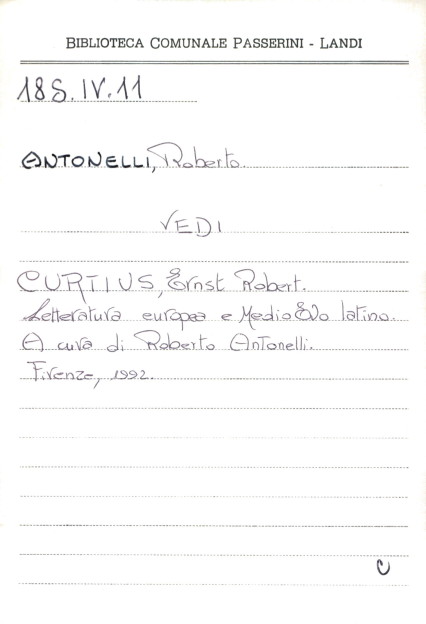 BIBLIOTECA COMUNALE PASSERINI - LANDI
18S.IV.11
ANTONELLI, Roberto
VEDI
CURTIUS, Ernst Robert.
Letteratura europea e Medio Evo latino.
A cura di Roberto Antonelli.
Firenze, 1992.
C